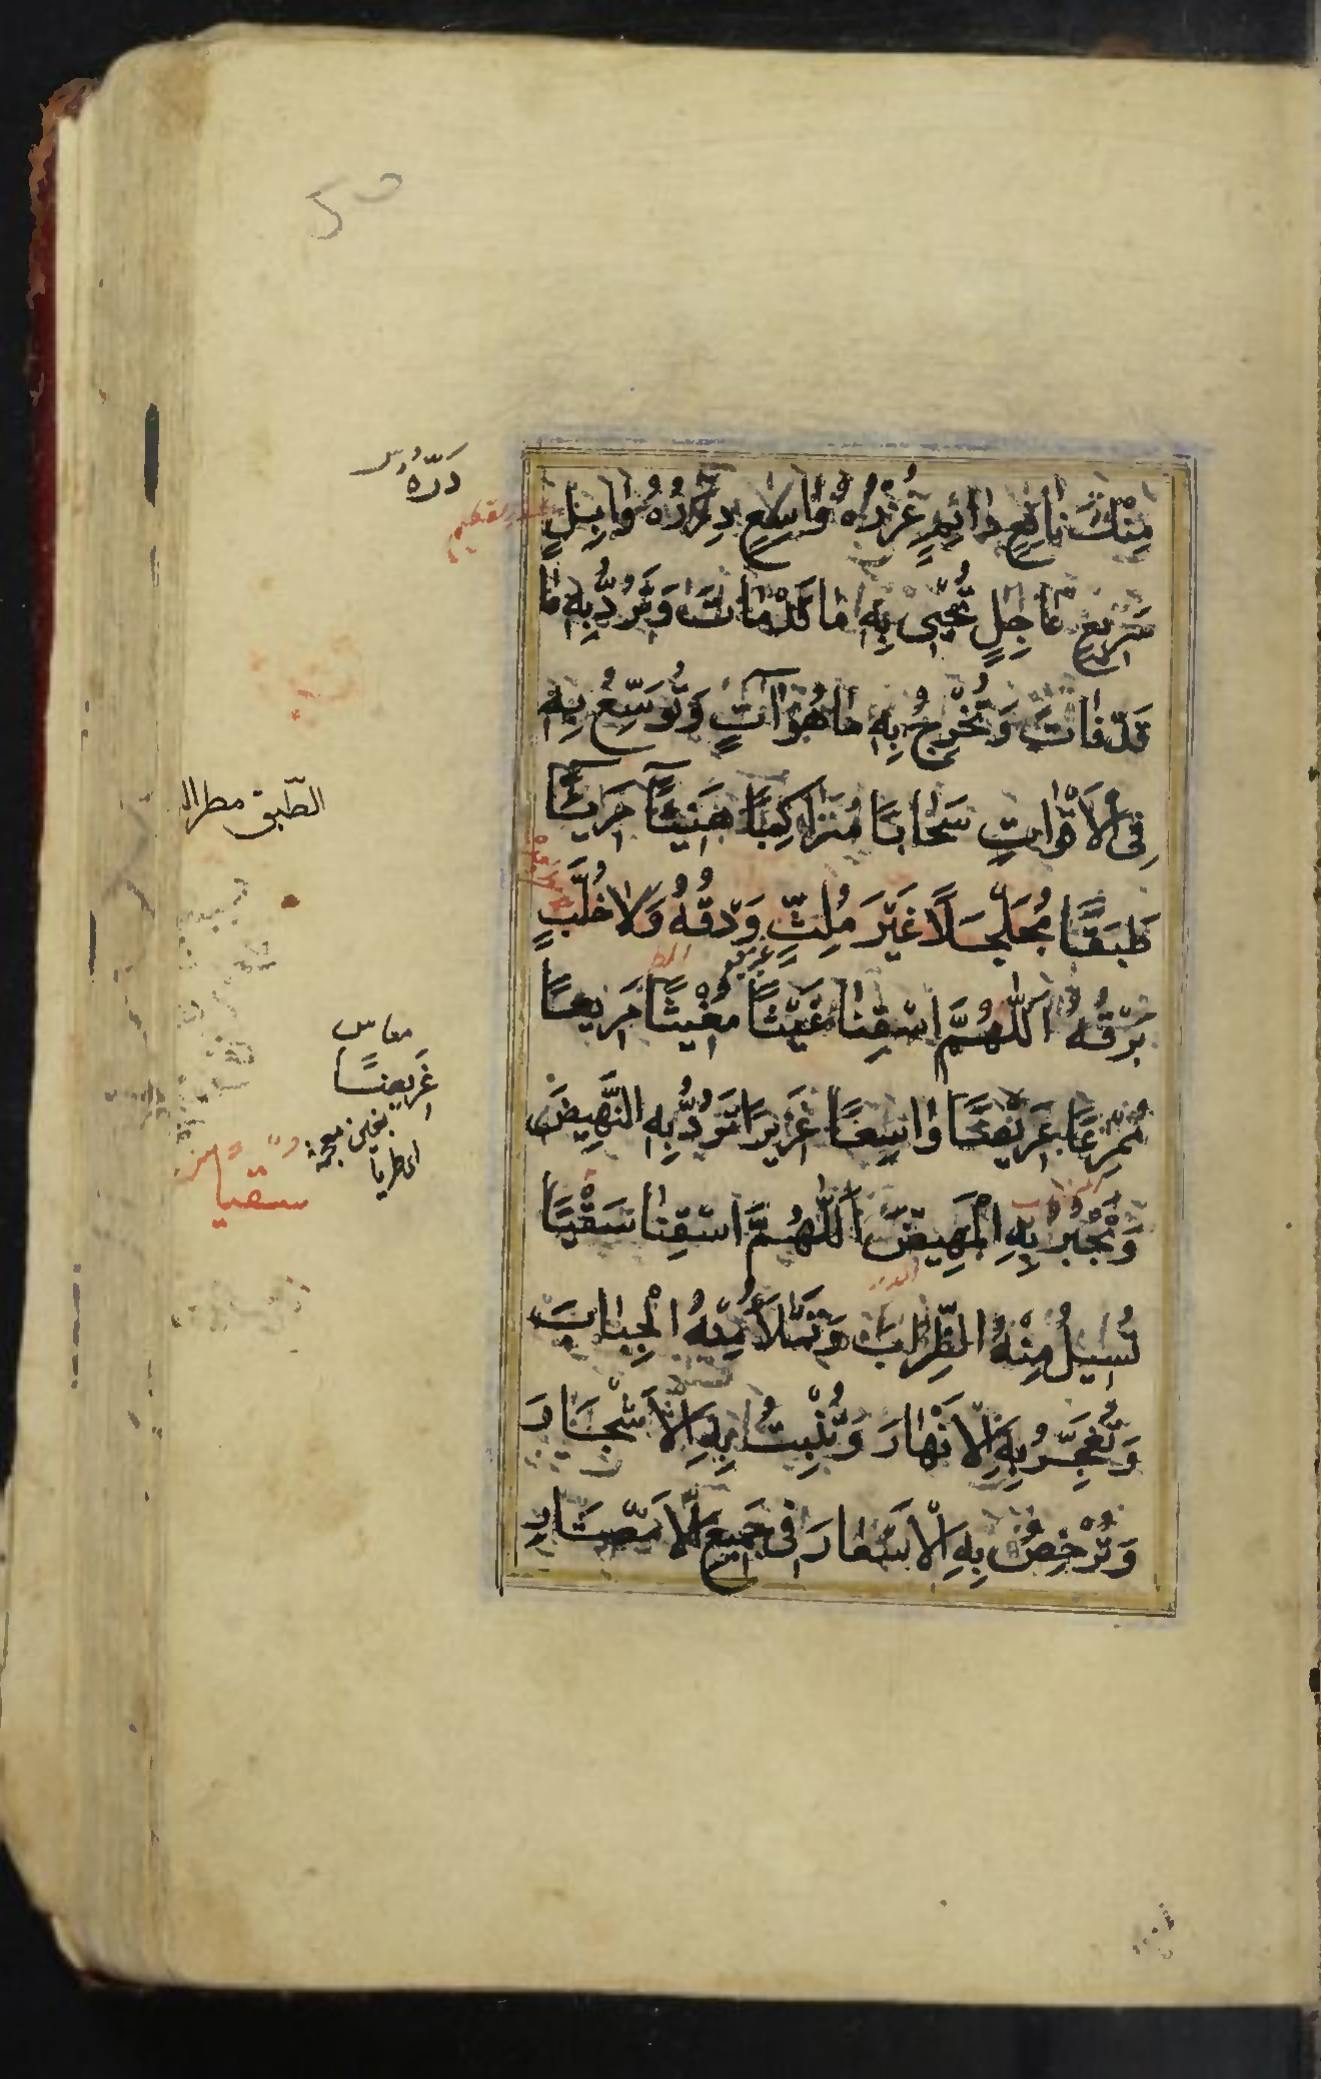 دَرُّهُ س
مِنْكَ نَافِعٍ دَائِمٍ غُزْرُهُ وَاسِعٍ دِرَرُهُ وَابِلٍ
سَرِيعٍ عَاجِلٍ تُحْيِي بِهِ مَا قَدْ مَاتَ وَتَرُدُّ بِهِ مَا
قَدْ فَاتَ وَتُخْرِجُ بِهِ مَا هُوَ آتٍ وَتُوَسِّعُ بِهِ
فِي الْأَقْوَاتِ سَحَابًا مُتَرَاكِبًا هَنِيئًا مَرِيئًا
الطّبق مطر
طَبَقًا مُجَلْجَلًا غَيْرَ مُلِثٍّ وَدْقُهُ وَلَا خُلَّبٍ
بَرْقُهُ اَللّٰهُمَّ اسْقِنَا غَيْثًا مُغِيثًا مَرِيعًا
مُمْرِعًا عَرِيضًا وَاسِعًا غَزِيرًا تَرُدُّ بِهِ النَّهِيضَ
غَرِيضًا
وَتَجْبُرُ بِهِ الْمَهِيضَ اَللّٰهُمَّ اسْقِنَا سَقْيًا
سقيًا
تُسِيلُ مِنْهُ الظِّرَابَ وَتَمْلَأُ مِنْهُ الْجِبَابَ
وَتُفَجِّرُ بِهِ الْأَنْهَارَ وَتُنْبِتُ بِهِ الْأَشْجَارَ
وَتُرْخِصُ بِهِ الْأَسْعَارَ فِي جَمِيعِ الْأَمْصَارِ